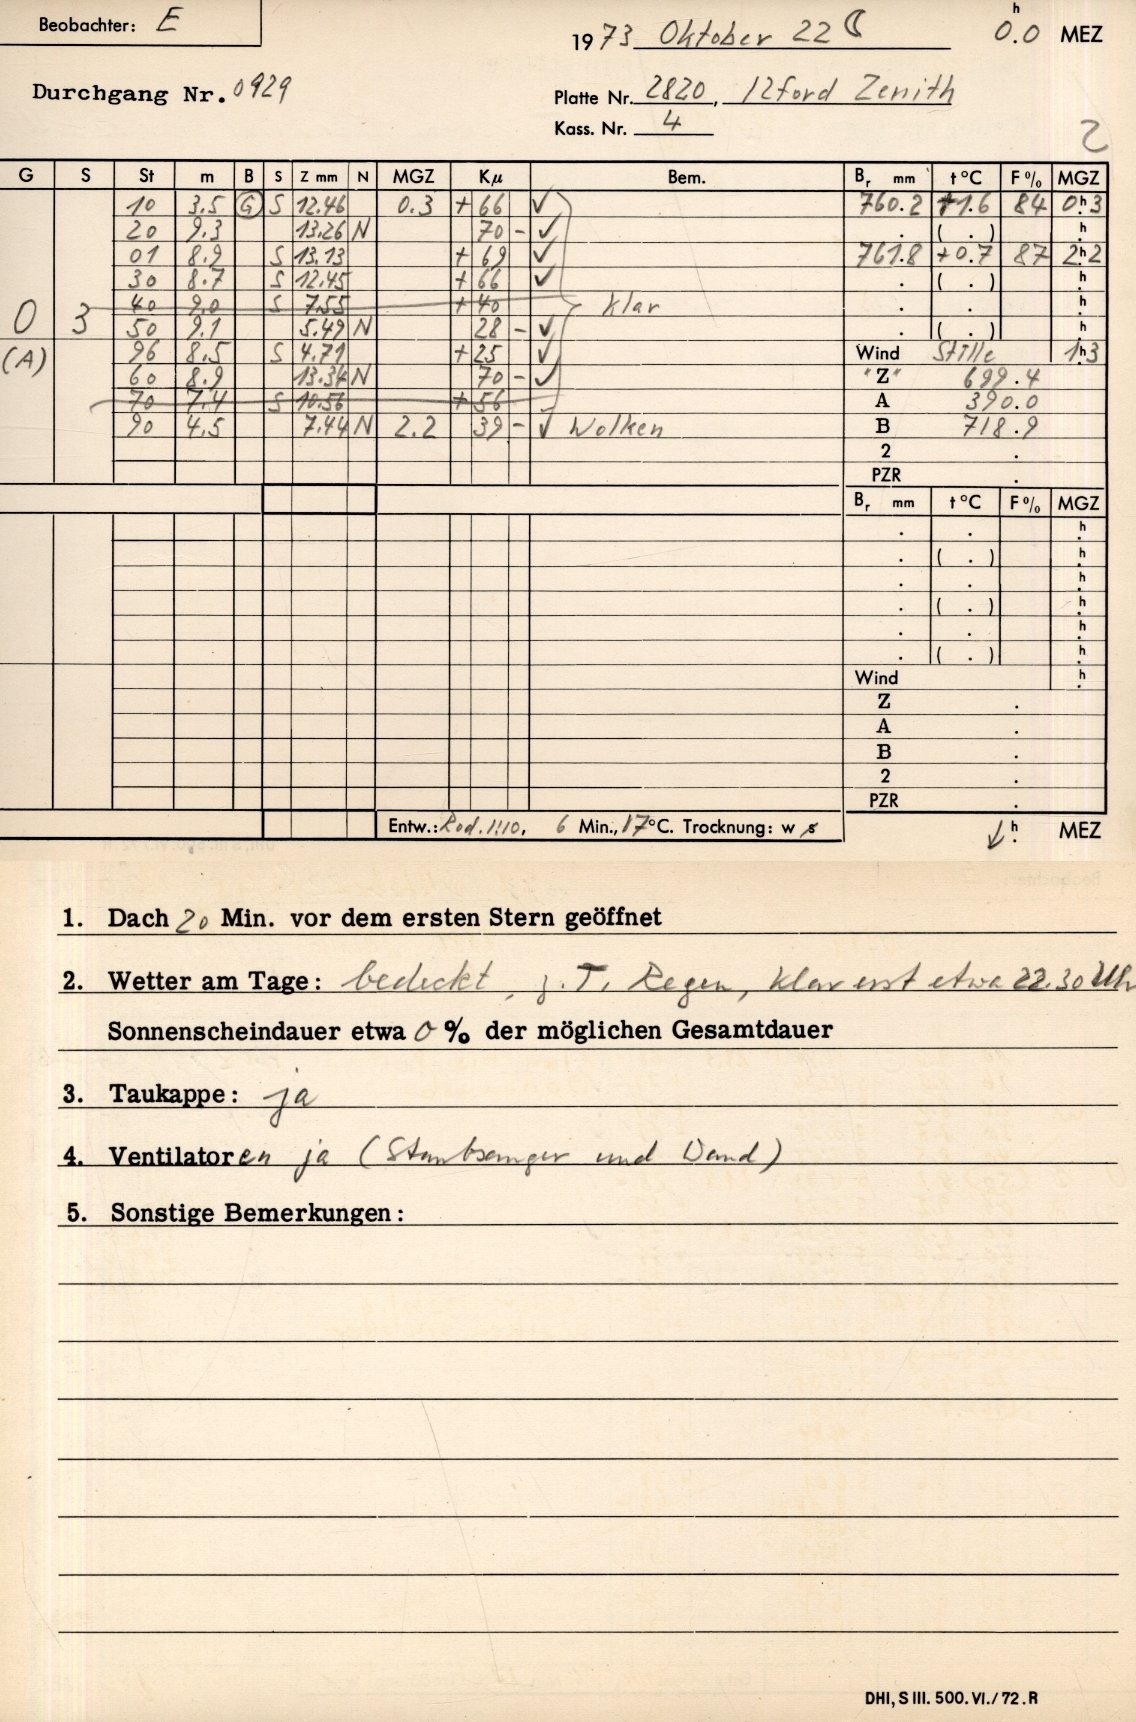 Beobachter: E
1973 Oktober 22 0.0 h MEZ
Durchgang Nr. 0929
Platte Nr. 2820, Ilford Zenith
Kass. Nr. 4
2
G S St m B S Z mm N MGZ Kμ Bem. Br mm t °C F % MGZ
10 3.5 G S 12.46 0.3 + 66 ✓ 760.2 +1.6 84 0h3
20 9.3 13.26 N 70 - ✓ . ( . ) h
01 8.9 S 13.13 + 69 ✓ 761.8 +0.7 87 2h2
30 8.7 S 12.45 + 66 ✓ . ( . ) h
40 9.0 S 7.55 + 40 klar . . h
0 3 50 9.1 5.49 N 28 - ✓ . ( . ) h
(A) 96 8.5 S 4.71 + 25 ✓ Wind Stille 1h3
60 8.9 13.34 N 70 - ✓ "Z" 699.4
70 7.4 S 10.56 + 56 A 390.0
90 4.5 7.44 N 2.2 39 - ✓ Wolken B 718.9
2 .
PZR .
Br mm t °C F % MGZ
. . h
. ( . ) h
. . h
. ( . ) h
. . h
. ( . ) h
Wind h
Z .
A .
B .
2 .
PZR .
Entw.: Rod. 1:10, 6 Min., 17 °C. Trocknung: w s h MEZ
1. Dach 20 Min. vor dem ersten Stern geöffnet
2. Wetter am Tage: bedeckt, z.T. Regen, klar erst etwa 22.30 Uhr
Sonnenscheindauer etwa 0 % der möglichen Gesamtdauer
3. Taukappe: ja
4. Ventilatoren ja (Staubsauger und Wand)
5. Sonstige Bemerkungen:
DHI, S III. 500. VI./72. R